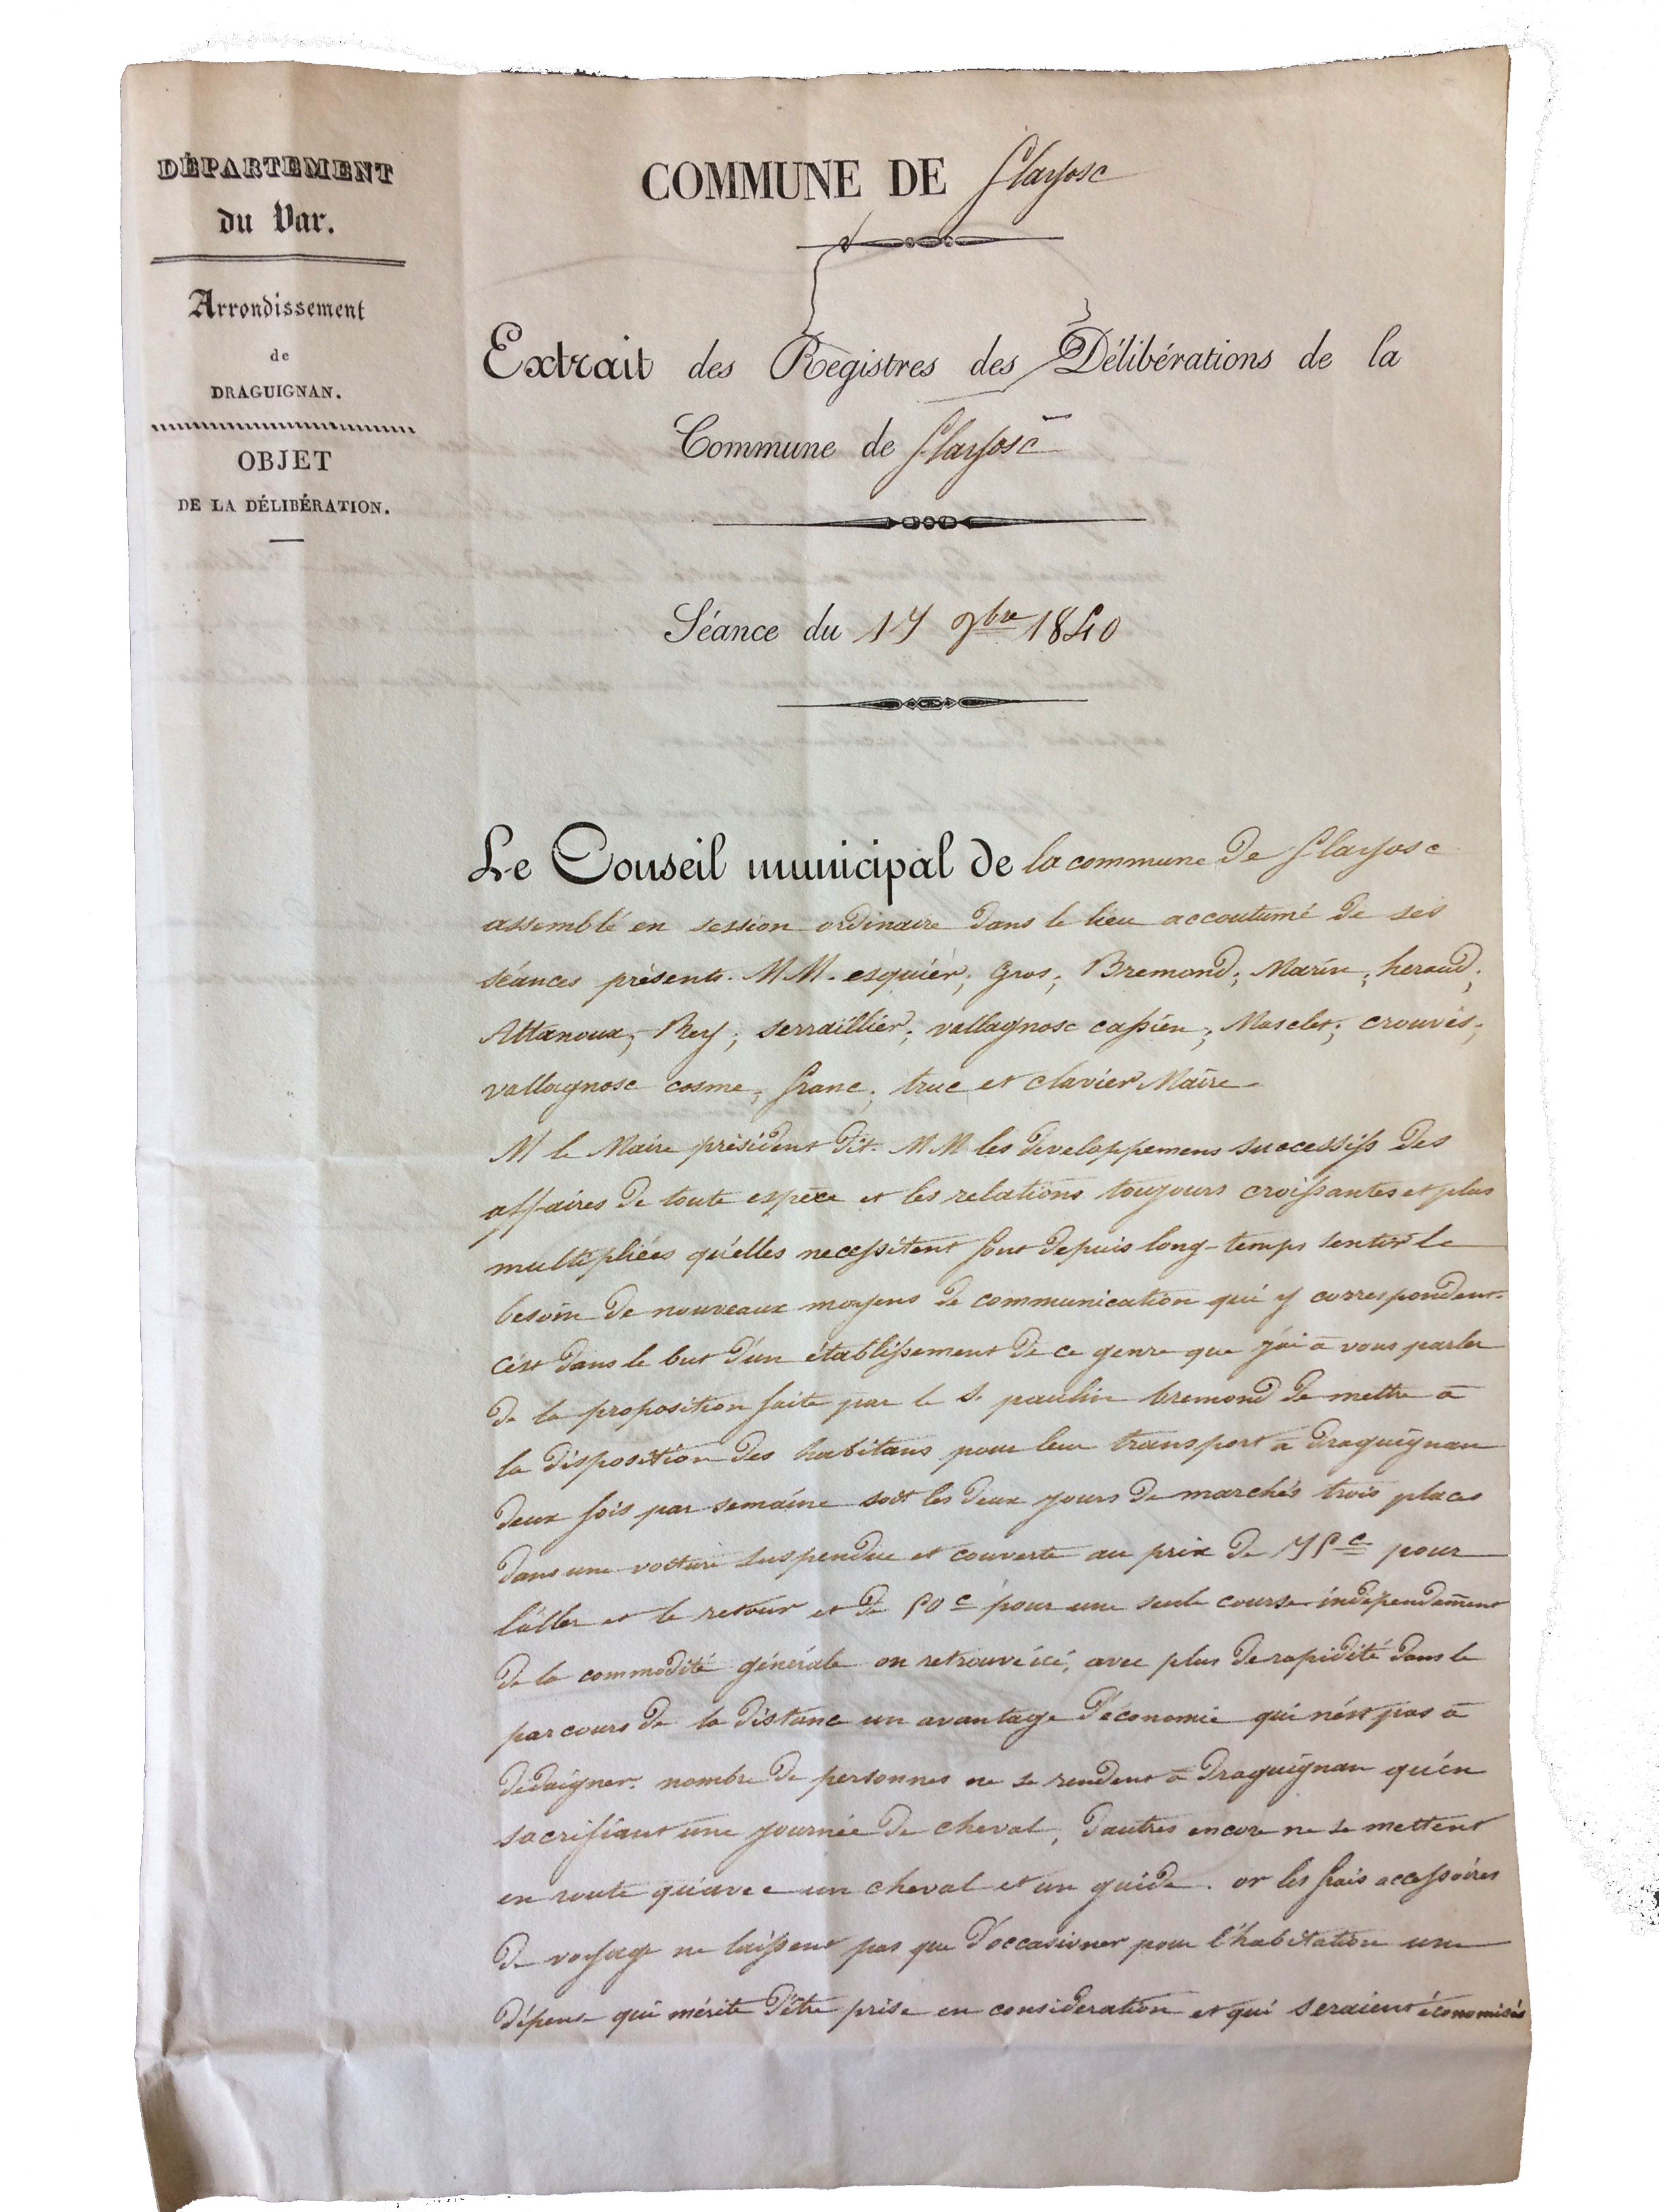 DÉPARTEMENT
du Var.
Arrondissement
de
DRAGUIGNAN.
OBJET
DE LA DÉLIBÉRATION.
COMMUNE DE flayosc
Extrait des Registres des Délibérations de la
Commune de flayosc
Séance du 17 9bre 1840
Le Conseil municipal de la commune de flayosc
assemblé en session ordinaire dans le lieu accoutumé de ses
séances présents. MM. esquiér; Gros; Bremond; Marin; heraud;
Attanoux; Rey; serraillier; vallagnosc cassien; Mascler; crouvés;
vallagnosc cosme; franc; truc et clavier Maire.
M le Maire président dit. MM les developpemens successifs des
affaires de toute espèce et les relations toujours croissantes et plus
multipliées qu'elles necessitent font depuis long-temps sentir le
besoin de nouveaux moyens de communication qui y correspondent.
c'est dans le but d'un établissement de ce genre que j'ai à vous parler
de la proposition faite par le s. paulin bremond de mettre à
la disposition des habitans pour leur transport à draguignan
deux fois par semaine soit les deux jours de marchés trois places
dans une voiture suspendue et couverte au prix de 75 c pour
l'aller et le retour et de 50 c pour une seule course indépendamment
de la commodité générale on retrouve ici, avec plus de rapidité dans le
parcours de la distance un avantage d'économie qui n'est pas à
dédaigner. nombre de personnes ne se rendent à draguignan qu'en
sacrifiant une journée de cheval, d'autres encore ne se mettent
en route qu'avec un cheval et un guide. or les frais accessoires
de voyage ne laissent pas que d'occasioner pour l'habitation une
dépense qui mérite d'être prise en consideration et qui seraient économisés